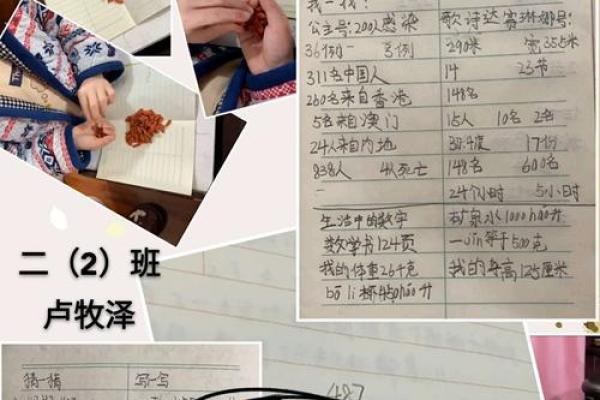 找一找:
公主号:200人感染 歌诗达赛琳娜号:
36例 3例 290米 宽35.5米
311名中国人 14 23节
260名来自香港 148名
5名来自澳门 15人 10名 2名
24人来自内地 37.4度 17份
838人 4人死亡 148名 600名
24个小时 5小时
生活中的数字 矿泉水1000háo升
数学书124页 一jīn等于500克
我的体重26千克 我的身高125厘米
bō li杯450háo升
二（2）班
卢牧泽
猜一猜 写一写
487